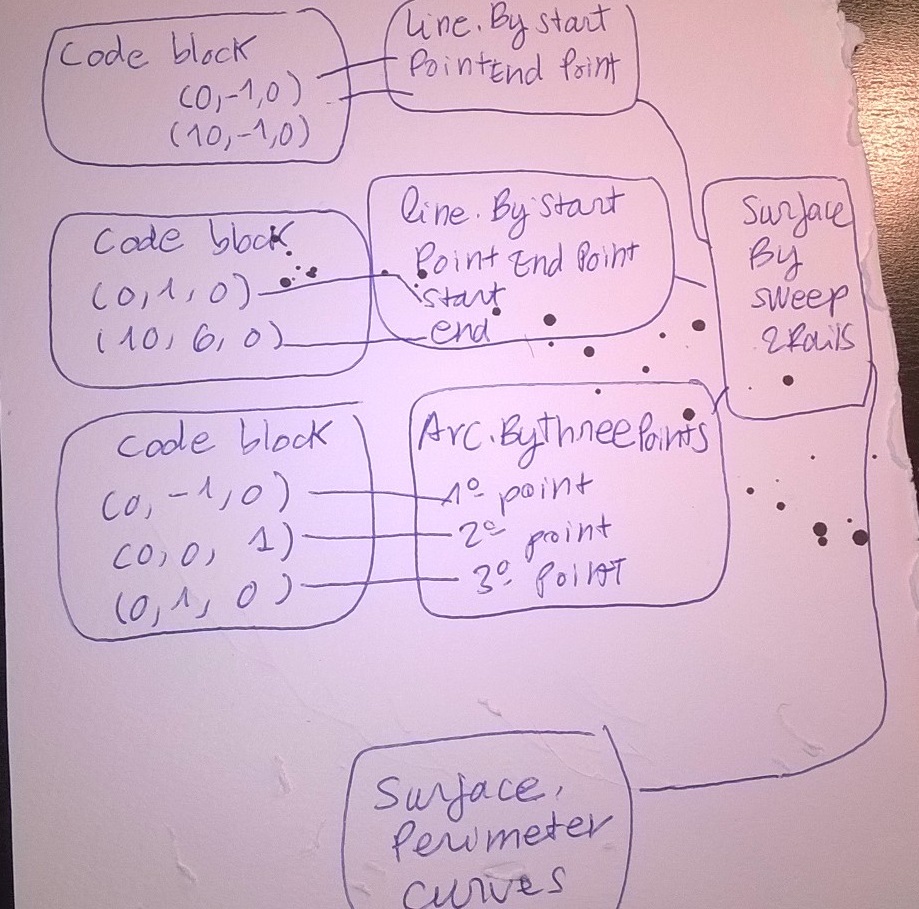 Code block
(0,-1,0)
(10,-1,0)
Line. By start
PointEnd Point
Code block
(0,1,0)
(10, 6, 0)
line. By Start
Point End Point
start
end
Surface
By
sweep
2Rails
Code block
(0, -1, 0)
(0, 0, 1)
(0, 1, 0)
Arc. ByThreePoints
1º point
2º point
3º Point
Surface.
Perimeter
curves